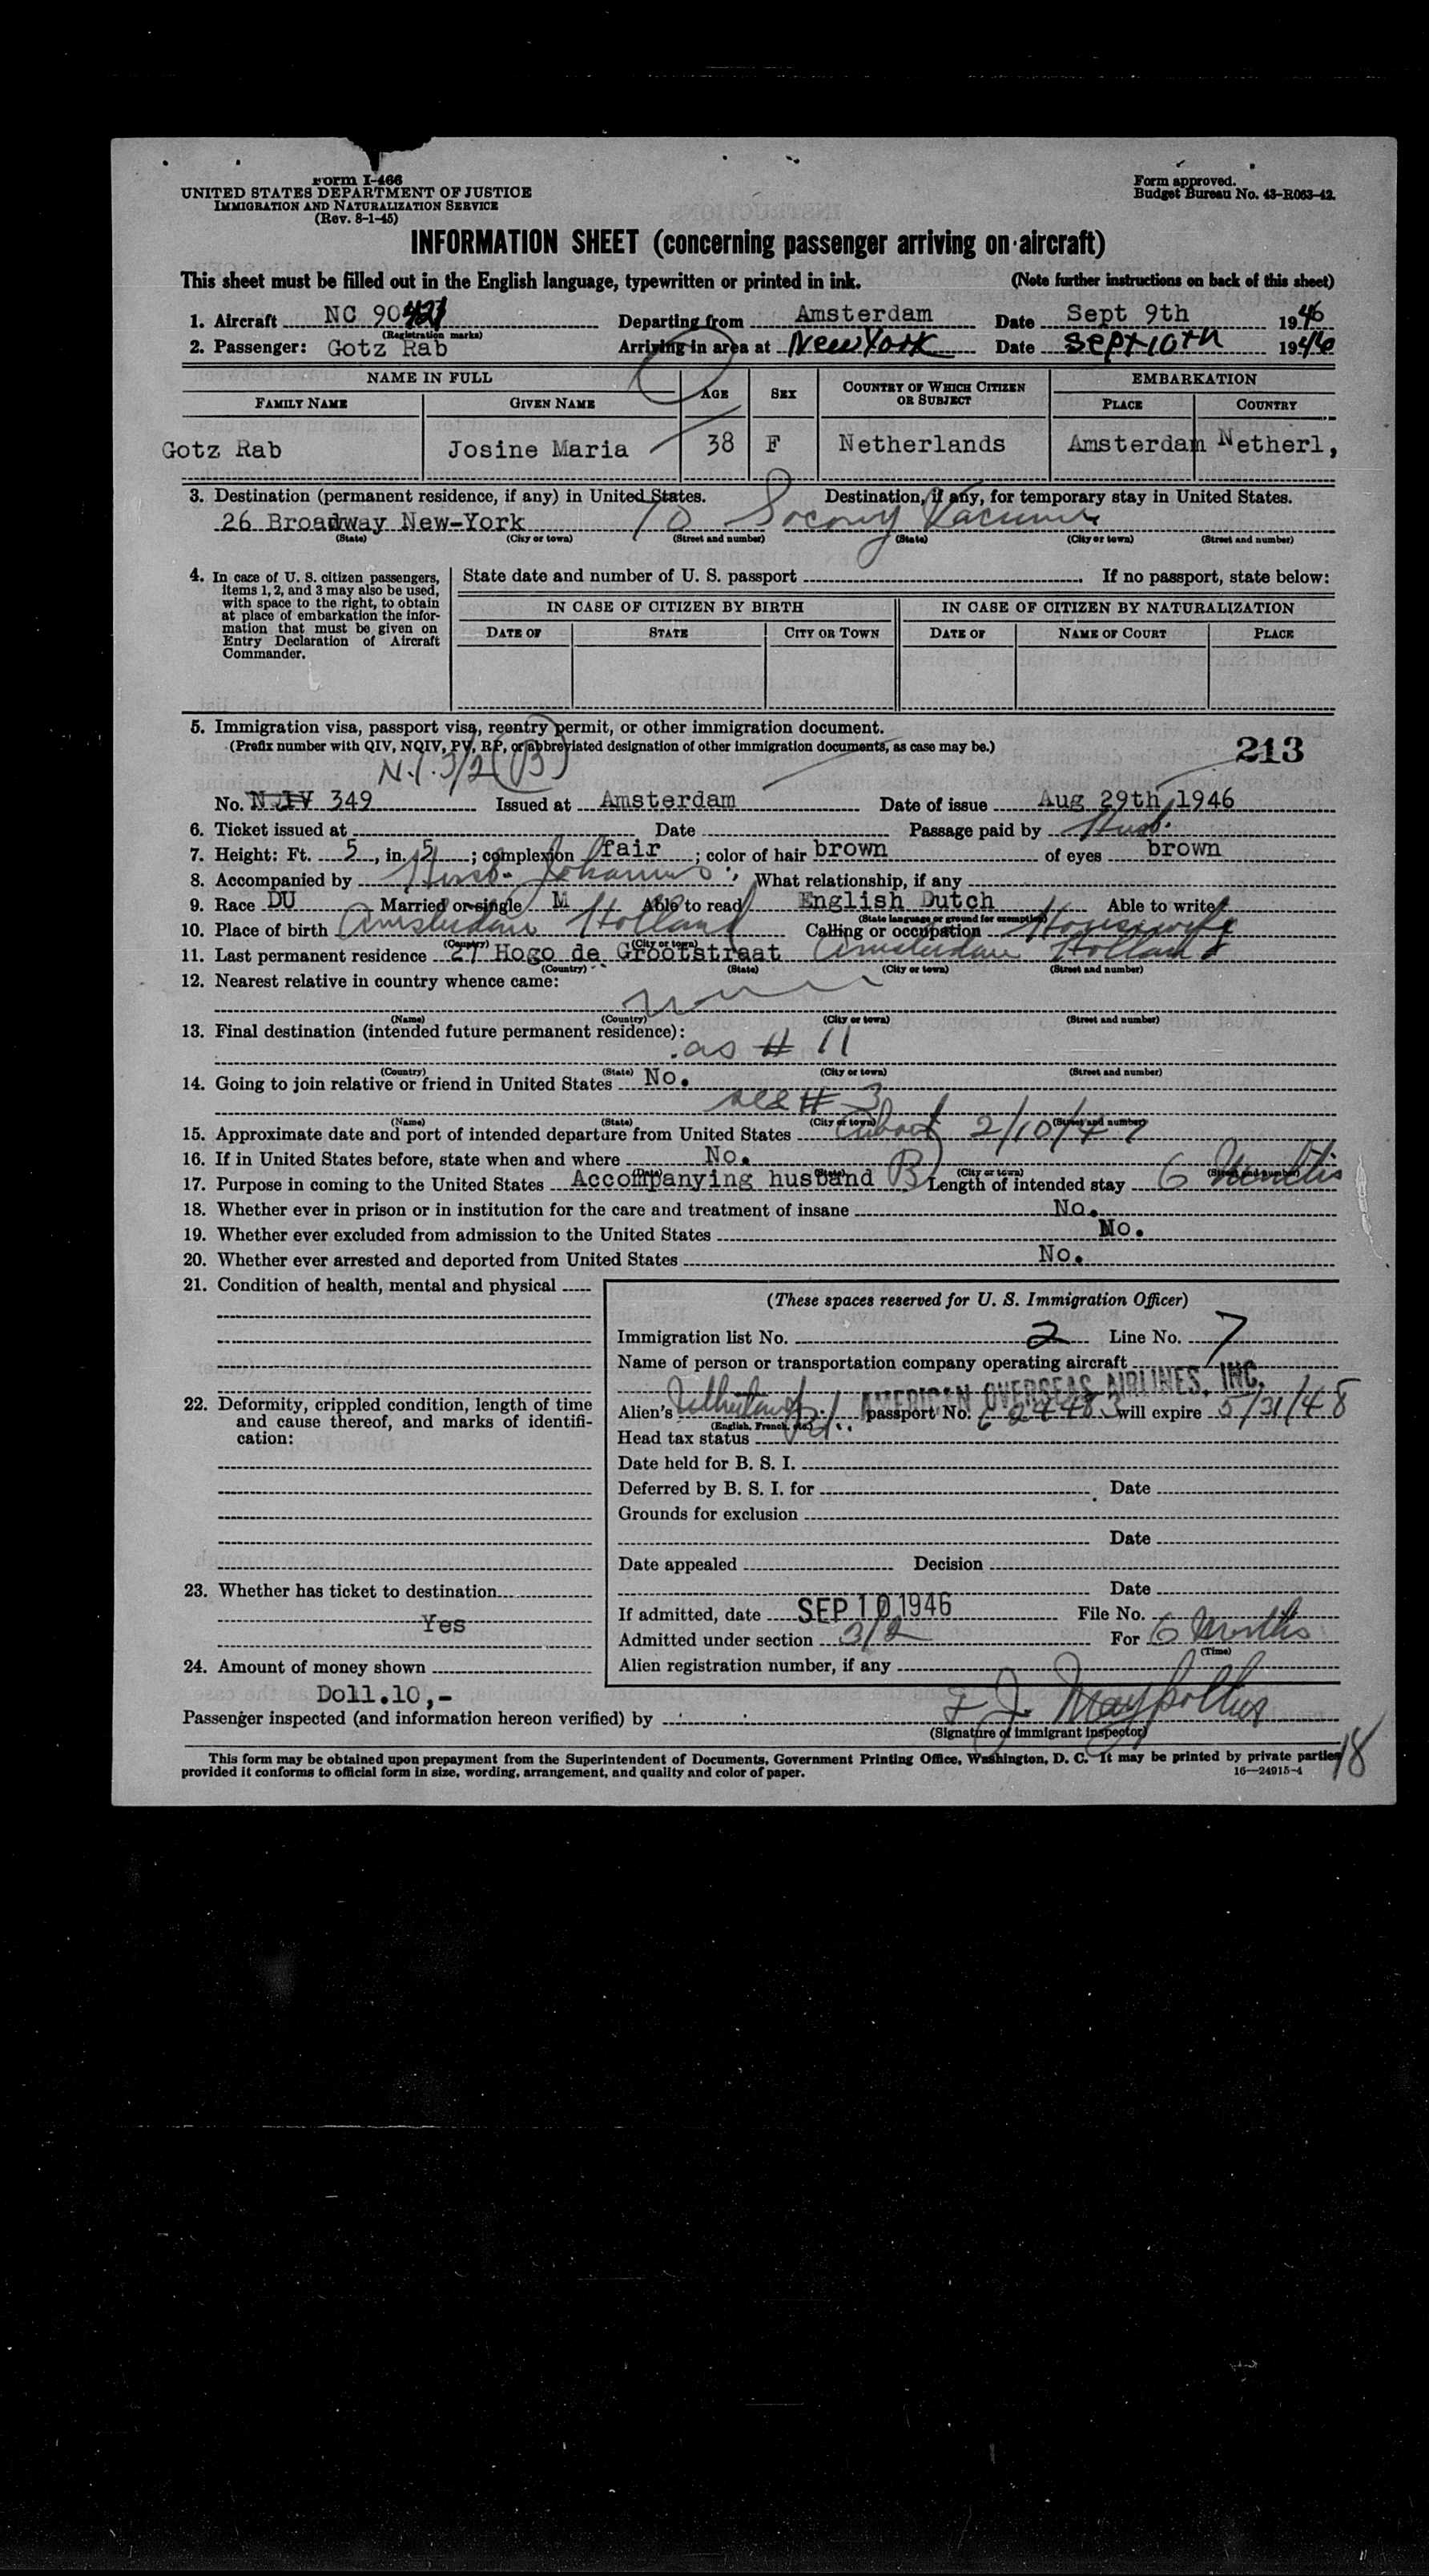 Form I-466
UNITED STATES DEPARTMENT OF JUSTICE
IMMIGRATION AND NATURALIZATION SERVICE
(Rev. 8-1-45)
Form approved.
Budget Bureau No. 43-R063-42.
INFORMATION SHEET (concerning passenger arriving on aircraft)
This sheet must be filled out in the English language, typewritten or printed in ink. (Note further instructions on back of this sheet)
1. Aircraft NC 90421 Departing from Amsterdam Date Sept 9th 1946
(Registration marks)
2. Passenger: Gotz Rab Arriving in area at New York Date Sept 10th 1946
NAME IN FULL AGE SEX COUNTRY OF WHICH CITIZEN OR SUBJECT EMBARKATION
FAMILY NAME GIVEN NAME PLACE COUNTRY
Gotz Rab Josine Maria 38 F Netherlands Amsterdam Netherl,
3. Destination (permanent residence, if any) in United States. Destination, if any, for temporary stay in United States.
26 Broadway New-York Socony Vacuum
(State) (City or town) (Street and number) (State) (City or town) (Street and number)
4. In case of U. S. citizen passengers, items 1, 2, and 3 may also be used, with space to the right, to obtain at place of embarkation the information that must be given on Entry Declaration of Aircraft Commander.
State date and number of U. S. passport If no passport, state below:
IN CASE OF CITIZEN BY BIRTH IN CASE OF CITIZEN BY NATURALIZATION
DATE OF STATE CITY OR TOWN DATE OF NAME OF COURT PLACE
5. Immigration visa, passport visa, reentry permit, or other immigration document.
(Prefix number with QIV, NQIV, PV, RP, or abbreviated designation of other immigration documents, as case may be.) 213
3/2 (B)
No. 349 Issued at Amsterdam Date of issue Aug 29th 1946
6. Ticket issued at Date Passage paid by Husb.
7. Height: Ft. 5, in. 5; complexion fair; color of hair brown of eyes brown
8. Accompanied by Husb. Johannes What relationship, if any
9. Race DU Married or single M Able to read English Dutch Able to write
(State language or ground for exemption)
10. Place of birth Amsterdam Holland Calling or occupation Housewife
(Country) (City or town)
11. Last permanent residence 27 Hogo de Grootstraat Amsterdam Holland
(Country) (State) (City or town) (Street and number)
12. Nearest relative in country whence came:
(Name) (Country) (City or town) (Street and number)
13. Final destination (intended future permanent residence):
as # 11
(Country) (State) (City or town) (Street and number)
14. Going to join relative or friend in United States No.
see # 3
(Name) (State) (City or town) (Street and number)
15. Approximate date and port of intended departure from United States about 2/10/47
16. If in United States before, state when and where No.
(Date) (State) (City or town) (Street and number)
17. Purpose in coming to the United States Accompanying husband B Length of intended stay 6 Months
18. Whether ever in prison or in institution for the care and treatment of insane No.
19. Whether ever excluded from admission to the United States No.
20. Whether ever arrested and deported from United States No.
21. Condition of health, mental and physical
22. Deformity, crippled condition, length of time and cause thereof, and marks of identification:
23. Whether has ticket to destination
Yes
24. Amount of money shown
Doll.10,-
(These spaces reserved for U. S. Immigration Officer)
Immigration list No. 2 Line No. 7
Name of person or transportation company operating aircraft
AMERICAN OVERSEAS AIRLINES, INC.
Alien's passport No. 624483 will expire 5/31/48
(English, French, etc.)
Head tax status
Date held for B. S. I.
Deferred by B. S. I. for Date
Grounds for exclusion
Date
Date appealed Decision
Date
If admitted, date SEP 10 1946 File No.
Admitted under section 3/2 For 6 Months
(Time)
Alien registration number, if any
Passenger inspected (and information hereon verified) by
(Signature of immigrant inspector)
This form may be obtained upon prepayment from the Superintendent of Documents, Government Printing Office, Washington, D. C. It may be printed by private parties
provided it conforms to official form in size, wording, arrangement, and quality and color of paper. 16—24915-4
18